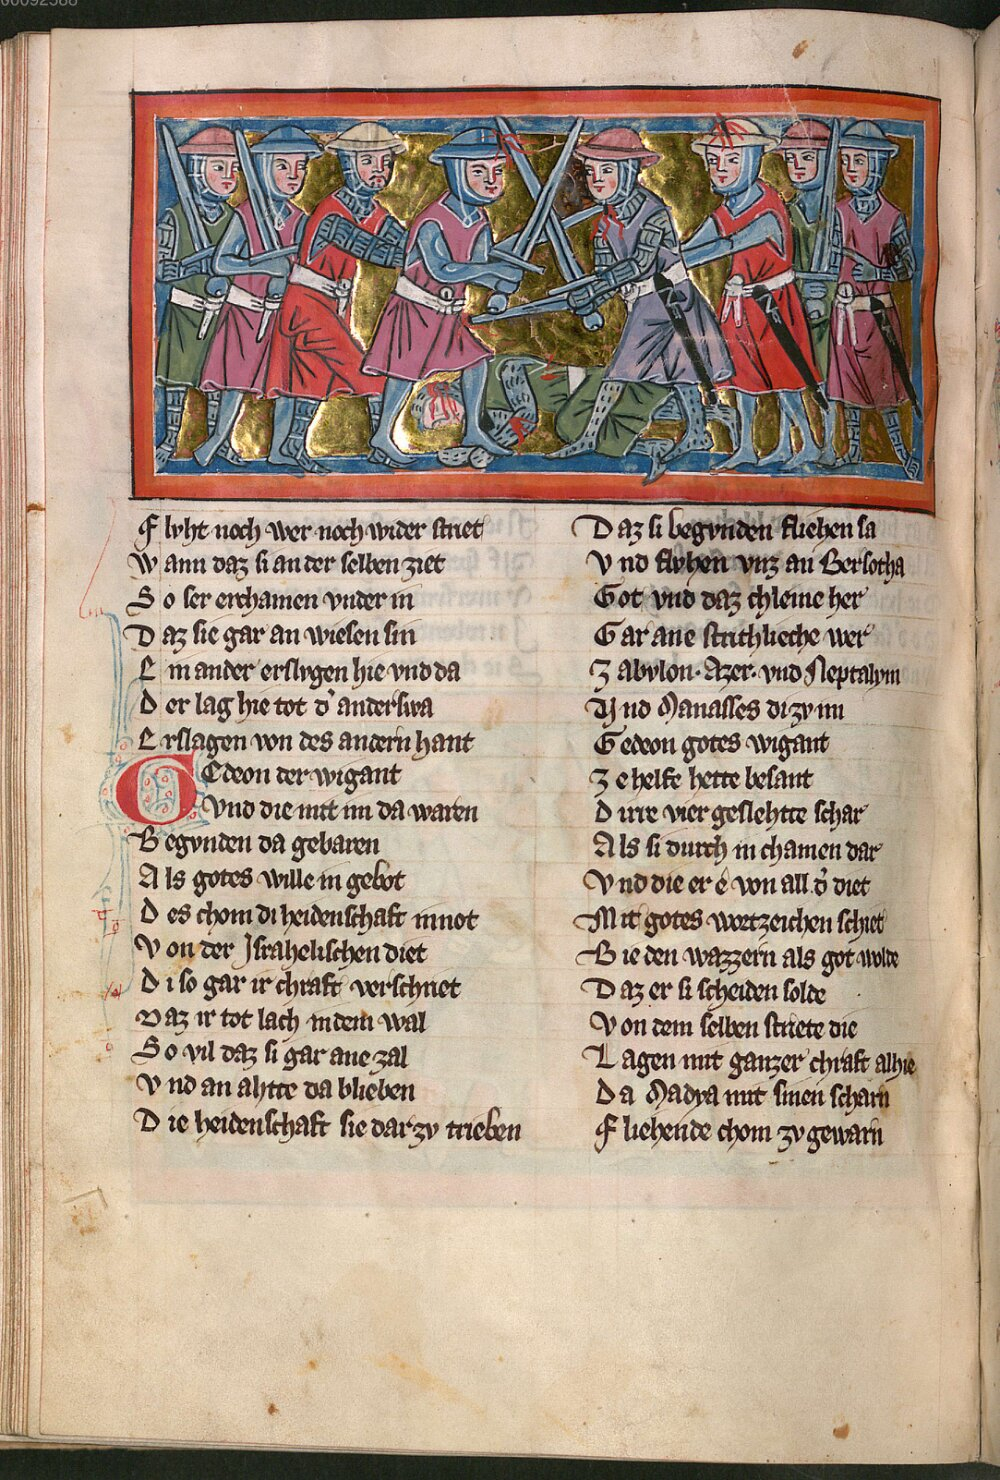 00092388
Flvht noch wer noch wider striet
Wann daz si an der selben ziet
So ser erchamen vnder in
Daz sie gar an wiesen sin
Ein ander erslvgen hie vnd da
Der lag hie tot d' anderswa
Erslagen von des andern hant
Gedeon der wigant
Vnd die mit im da waren
Begvnden da gebaren
Als gotes wille in gebot
Des chom di heidenschaft in not
Von der Israhelischen diet
Di so gar ir chraft verschriet
Daz ir tot lach in dem wal
So vil daz si gar ane zal
Vnd an ahtte da blieben
Die heidenschaft sie dar zv trieben
Daz si begvnden fliehen sa
Vnd flvhen vnz an Bersotha
Got vnd daz chleine her
Gar ane strithlieche wer
Zabvlon · Azer · vnd Neptalym
Vnd Manasses di zv im
Gedeon gotes wigant
Ze helfe hette besant
Dirre vier geslehtte schar
Als si durch in chamen dar
Vnd die er e von all d' diet
Mit gotes wortzeichen schiet
Bie den wazzern als got wolde
Daz er si scheiden solde
Von dem selben striete die
Lagen mit ganzer chraft alhie
Da Madya mit sinen scharn
Fliehende chom zv gewarn